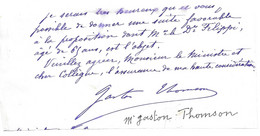 je serais très heureux que ce vous
possible de donner une suite favorable
à la proposition dont Mr le Dr Filippi,
âgé de 65 ans, est l'objet.
Veuillez agréer, Monsieur le Ministre et
cher Collègue, l'assurance de ma haute considération
Gaston Thomson
Mr Gaston Thomson